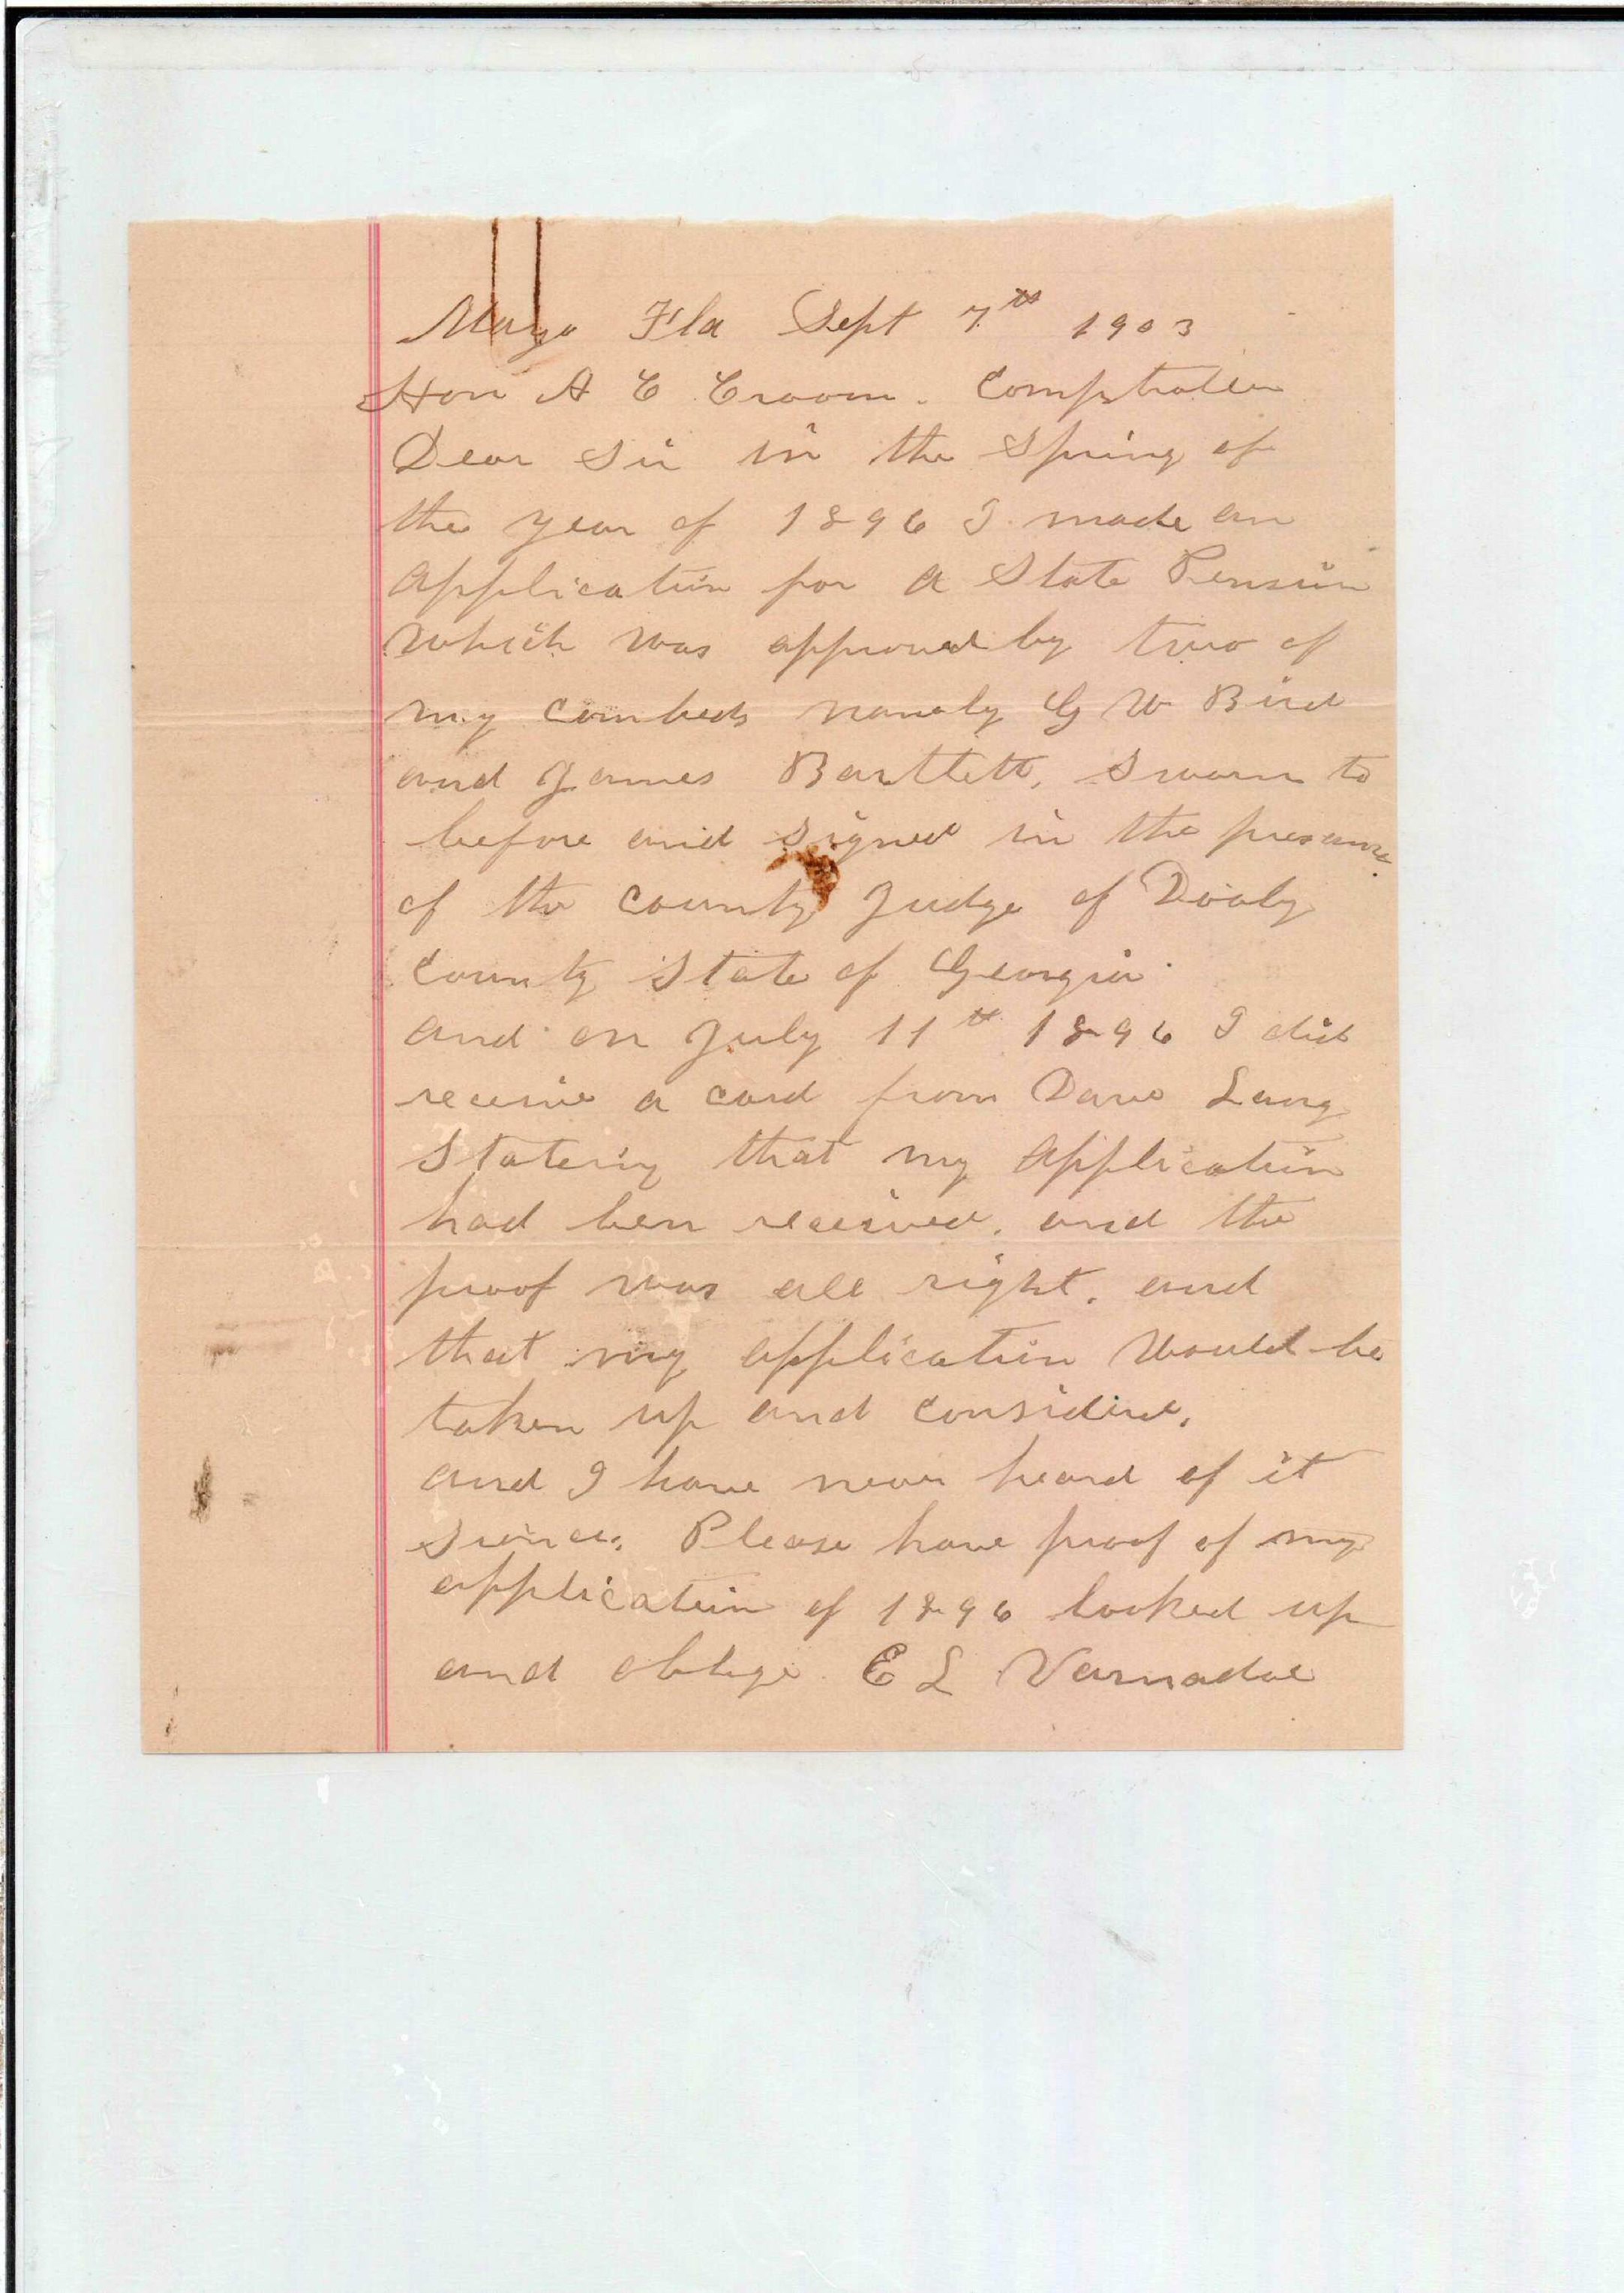 Mayo Fla Sept 7th 1903
Hon A C Croom. Comptroller
Dear Sir in the Spring of
the year of 1896 I made an
application for a State Pension
which was approved by two of
my combeds namely G W Bird
and James Bartlett, Sworn to
before and signed in the presance
of the county Judge of Dooly
County State of Georgia.
and on July 11th 1896 I did
receive a card from Dave Lang
Statering that my application
had ben received. and the
proof was all right. and
that my application Would be
taken up and considered.
and I have never heard of it
since. Please have proof of my
application of 1896 looked up
and oblige E L Varnadoe